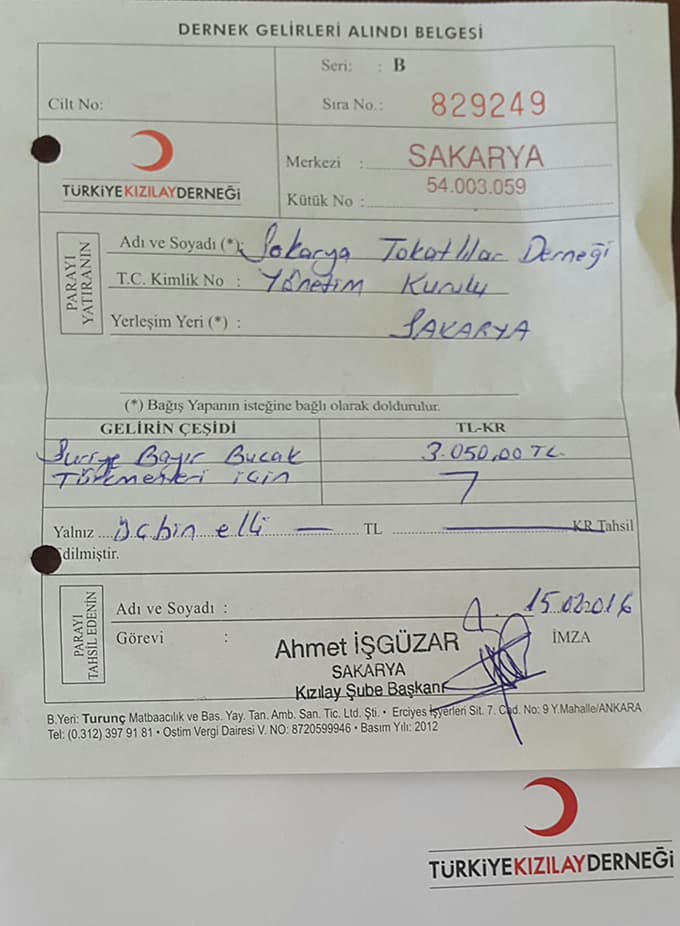 DERNEK GELİRLERİ ALINDI BELGESİ
Seri: : B
Cilt No:
Sıra No.: 829249
TÜRKİYEKIZILAYDERNEĞİ
Merkezi : SAKARYA
Kütük No : 54.003.059
PARAYI YATIRANIN
Adı ve Soyadı (*): Sakarya Tokatlılar Derneği
T.C. Kimlik No : Yönetim Kurulu
Yerleşim Yeri (*) : SAKARYA
(*) Bağış Yapanın isteğine bağlı olarak doldurulur.
GELİRİN ÇEŞİDİ TL-KR
Suriye Bayır Bucak 3.050,00 TL.
Türkmenleri için
Yalnız .... Üçbin elli — TL — KR Tahsil
Edilmiştir.
PARAYI TAHSİL EDENİN
Adı ve Soyadı : 15.02.2016
Görevi : İMZA
Ahmet İŞGÜZAR
SAKARYA
Kızılay Şube Başkanı
B.Yeri: Turunç Matbaacılık ve Bas. Yay. Tan. Amb. San. Tic. Ltd. Şti. • Erciyes İşyerleri Sit. 7. Cad. No: 9 Y.Mahalle/ANKARA
Tel: (0.312) 397 91 81 • Ostim Vergi Dairesi V. NO: 8720599946 • Basım Yılı: 2012
TÜRKİYEKIZILAYDERNEĞİ